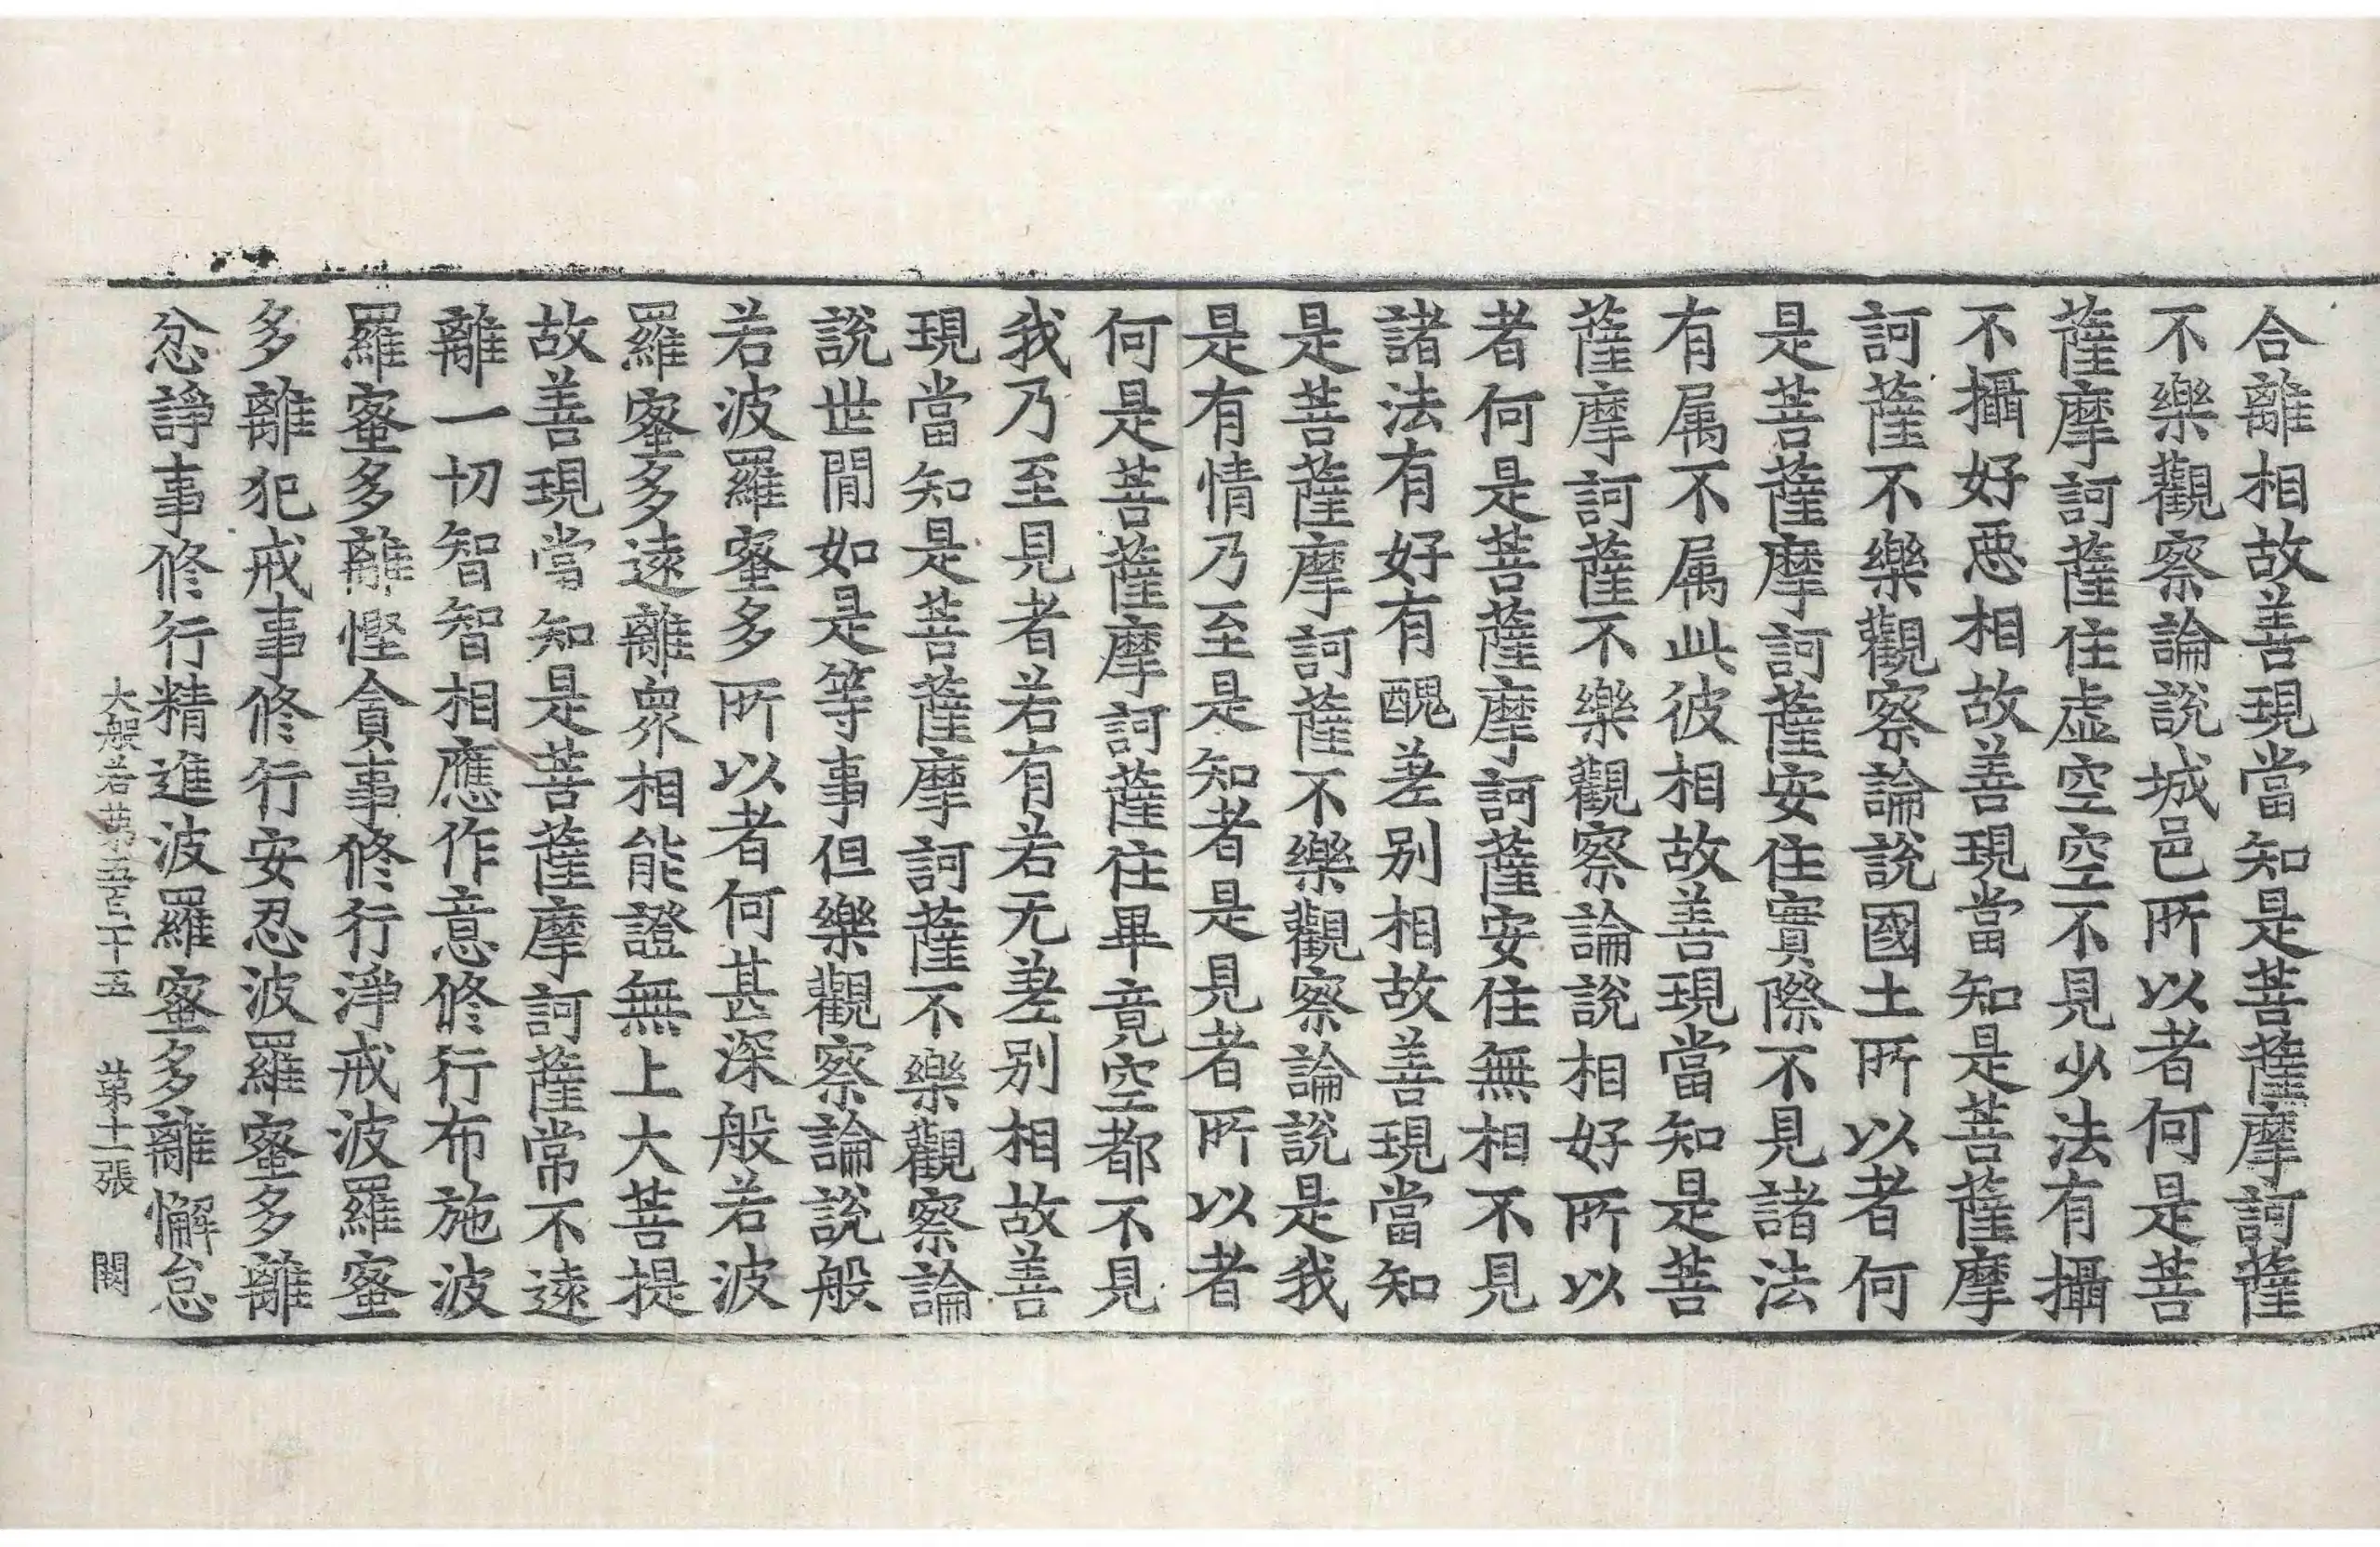 合離相故善現當知是菩薩摩訶薩
不樂觀察論說城邑所以者何是菩
薩摩訶薩住虛空空不見少法有攝
不攝好惡相故善現當知是菩薩摩
訶薩不樂觀察論說國土所以者何
是菩薩摩訶薩安住實際不見諸法
有属不属此彼相故善現當知是菩
薩摩訶薩不樂觀察論說相好所以
者何是菩薩摩訶薩安住無相不見
諸法有好有醜差别相故善現當知
是菩薩摩訶薩不樂觀察論說是我
是有情乃至是知者是見者所以者
何是菩薩摩訶薩住畢竟空都不見
我乃至見者若有若无差别相故善
現當知是菩薩摩訶薩不樂觀察論
說世間如是等事但樂觀察論說般
若波羅蜜多所以者何甚深般若波
羅蜜多遠離衆相能證無上大菩提
故善現當知是菩薩摩訶薩常不遠
離一切智智相應作意修行布施波
羅蜜多離慳貪事修行淨戒波羅蜜
多離犯戒事修行安忍波羅蜜多離
忿諍事修行精進波羅蜜多離懈怠
大般若第五百十五 第十一張 闕